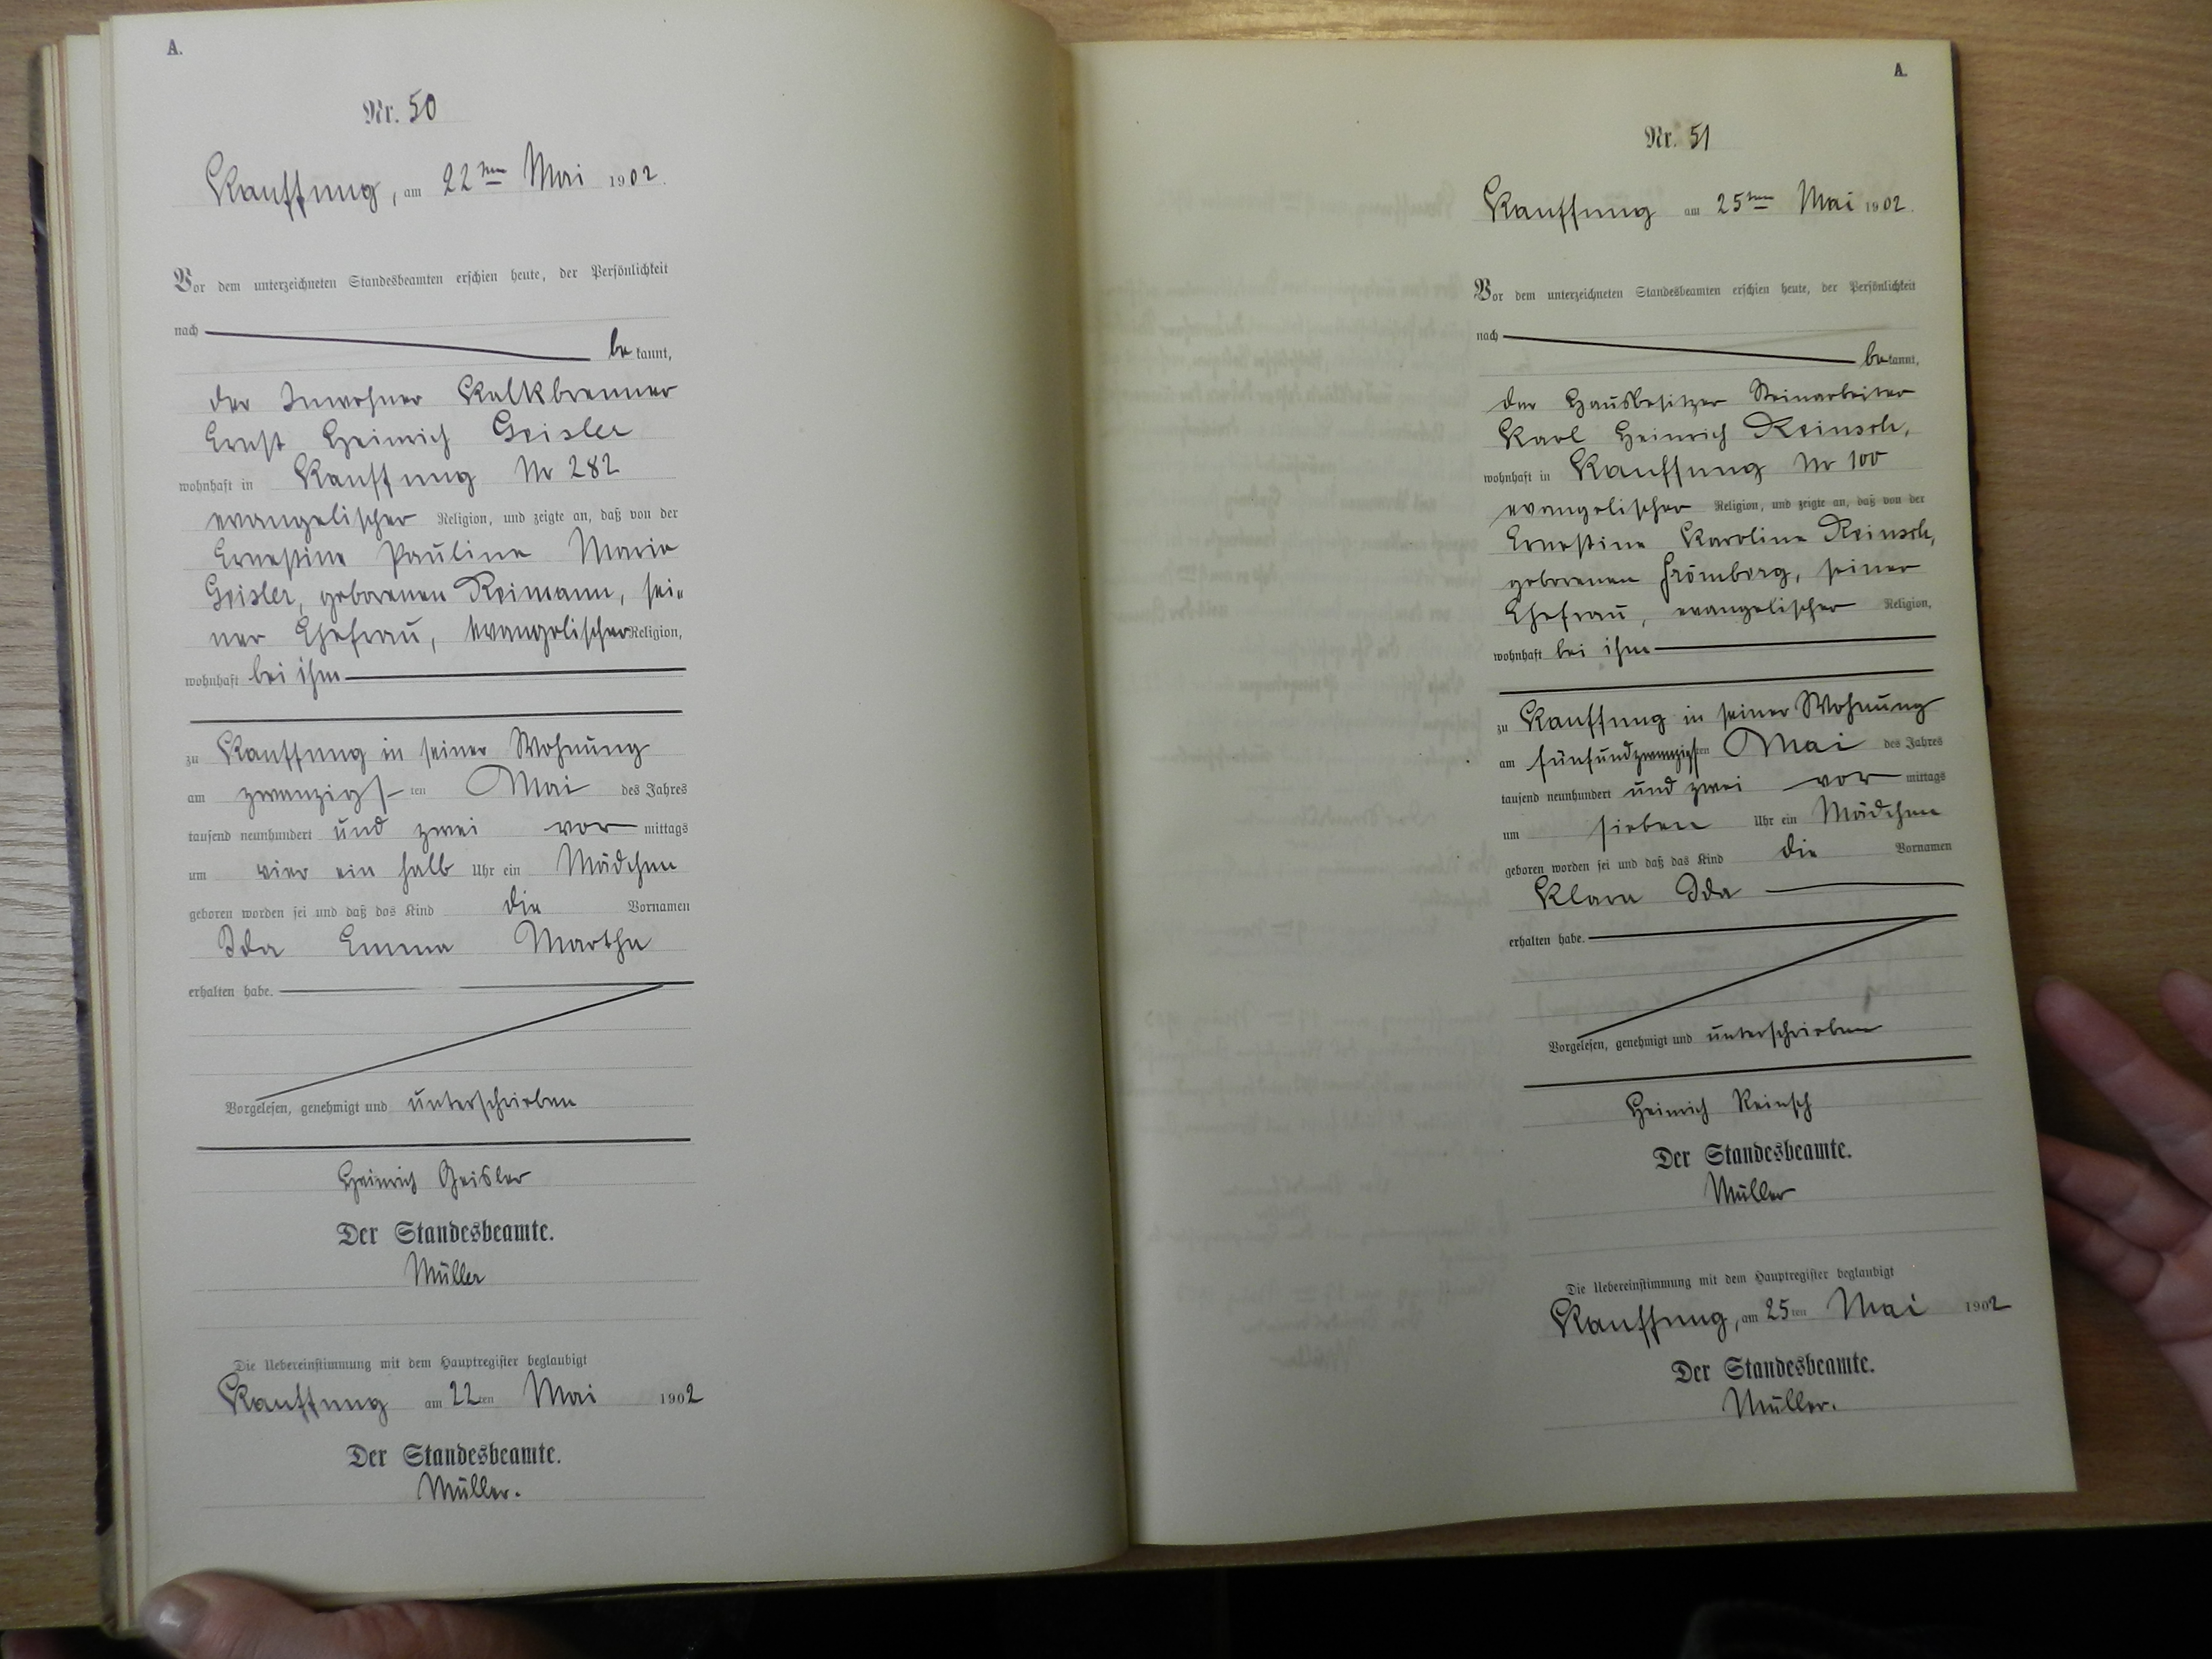 A.
Nr. 50
Kauffung, am 22ten Mai 1902.
Vor dem unterzeichneten Standesbeamten erschien heute, der Persönlichkeit
nach
be kannt,
der Inwohner Kalkbrenner
Ernst Heinrich Geisler
wohnhaft in Kauffung Nr 282
evangelischer Religion, und zeigte an, daß von der
Ernestine Pauline Marie
Geisler, geborenen Reimann, sei-
ner Ehefrau, evangelischer Religion,
wohnhaft bei ihm
zu Kauffung in seiner Wohnung
am zwanzigsten Mai des Jahres
tausend neunhundert und zwei vor mittags
um vier ein halb Uhr ein Mädchen
geboren worden sei und daß das Kind die Vornamen
Ida Emma Martha
erhalten habe.
Vorgelesen, genehmigt und unterschrieben
Heinrich Geisler
Der Standesbeamte.
Müller
Die Uebereinstimmung mit dem Hauptregister beglaubigt
Kauffung am 22ten Mai 1902
Der Standesbeamte.
Müller.
A.
Nr. 51
Kauffung am 25ten Mai 1902.
Vor dem unterzeichneten Standesbeamten erschien heute, der Persönlichkeit
nach
be kannt,
der Hausbesitzer Steinarbeiter
Karl Heinrich Reinsch,
wohnhaft in Kauffung Nr 100
evangelischer Religion, und zeigte an, daß von der
Ernestine Karoline Reinsch,
geborenen Frömberg, seiner
Ehefrau, evangelischer Religion,
wohnhaft bei ihm
zu Kauffung in seiner Wohnung
am fünfundzwanzigsten Mai des Jahres
tausend neunhundert und zwei vor mittags
um sieben Uhr ein Mädchen
geboren worden sei und daß das Kind die Vornamen
Klara Ida
erhalten habe.
Vorgelesen, genehmigt und unterschrieben
Heinrich Reinsch
Der Standesbeamte.
Müller
Die Uebereinstimmung mit dem Hauptregister beglaubigt
Kauffung, am 25ten Mai 1902
Der Standesbeamte.
Müller.